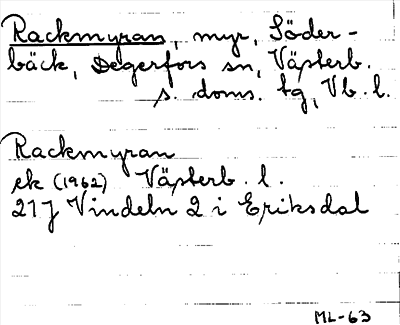 Rackmyran, myr, Söder-
bäck, Degerfors sn, Västerb.
s. doms. tg, Vb. l.
Rackmyran
ek (1962) Västerb. l.
21J Vindeln 2 i Eriksdal
ML-63